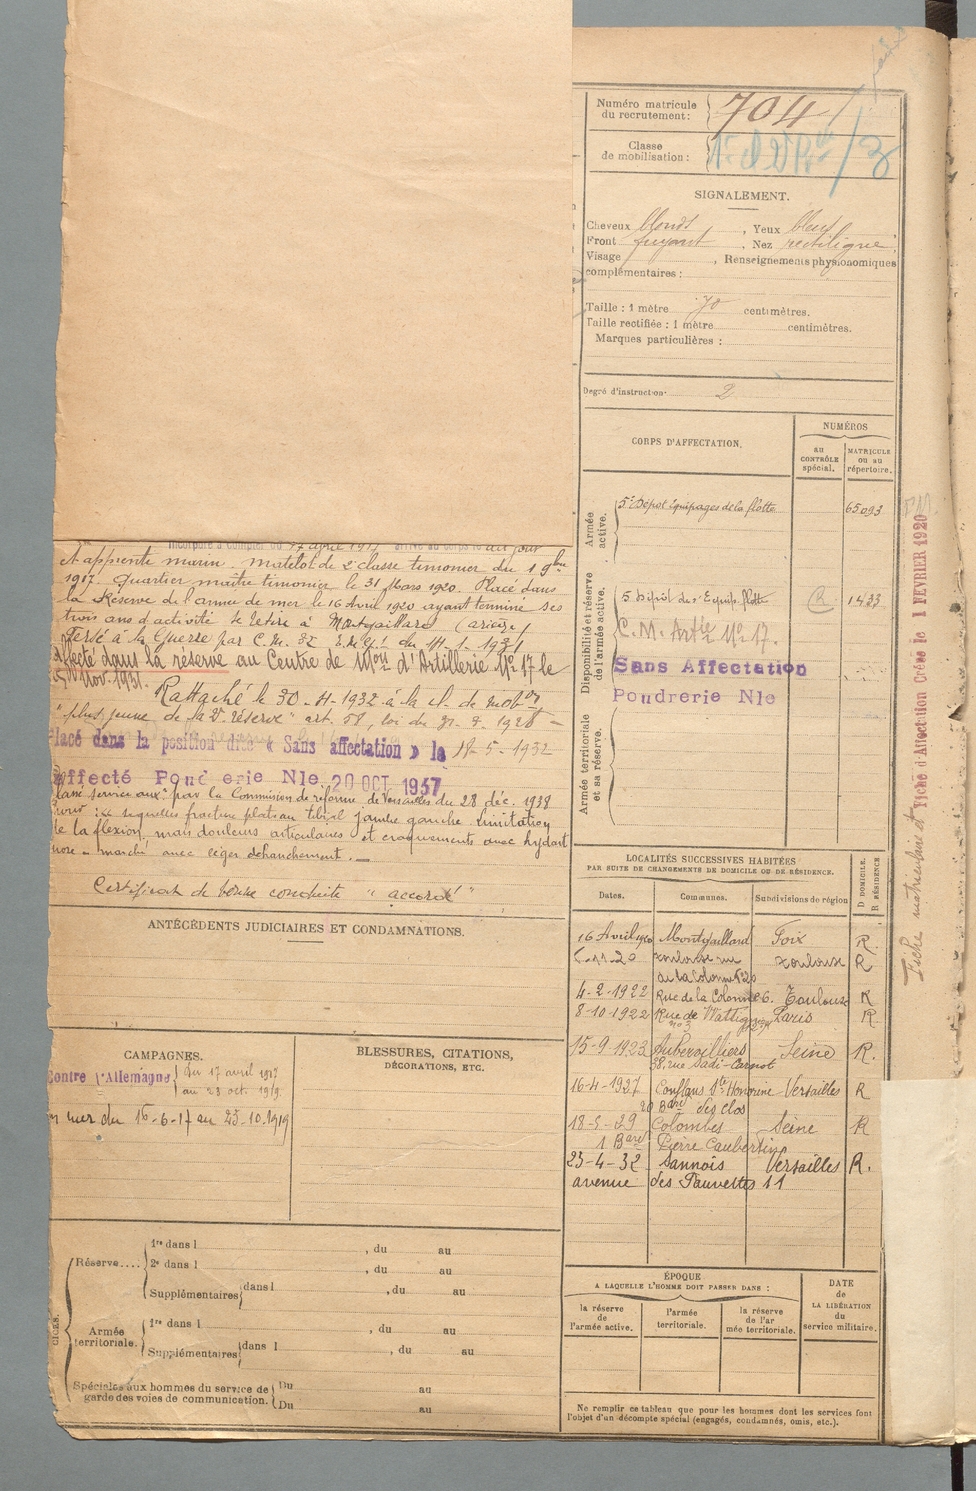 Numéro matricule
du recrutement : 704
Classe
de mobilisation :
SIGNALEMENT.
Cheveux blonds, Yeux bleus
Front fuyant, Nez rectiligne
Visage , Renseignements physionomiques
complémentaires :
Taille : 1 mètre 70 centimètres.
Taille rectifiée : 1 mètre centimètres.
Marques particulières :
Degré d'instruction 2
CORPS D'AFFECTATION.
NUMÉROS
au
CONTRÔLE
spécial.
MATRICULE
ou au
répertoire.
Armée
active.
5e Dépôt équipages de la flotte 65093
Disponibilité et réserve
de l'armée active.
5 Dépôt des Equip. flotte R 1433
C. M. Artie No 17.
Sans Affectation
Poudrerie Nle
Armée territoriale
et sa réserve.
Fiche matriculaire et Fiche d'Affectation Créée le 1 FEVRIER 1920
Incorporé à compter du 17 avril 1917 arrivé au corps le dit jour
et apprenti marin. matelot de 2e classe timonier du 1 9bre
1917. Quartier maître timonier le 31 Mars 1920. Placé dans
la Réserve de l'armée de mer le 16 Avril 1920 ayant terminé ses
trois ans d'activité se retire à Montgaillard (Ariège)
versé à la Guerre par C. M. 32 E.M.G.
Affecté dans la réserve au Centre de Mon d'Artillerie No 17 le
Nov. 1931.
Rattaché le 30-4-1932 à la cl. de mobon
"plus jeune de la 2e réserve" art. 58, loi du 31.3.1928 -
Placé dans la position dite « Sans affectation » le 18-5-1932
Affecté Poudrerie Nle 20 OCT 1937
classé service auxre par la Commission de réforme de Versailles du 28 déc. 1938
pour séquelles fracture plateau tibial jambe gauche limitation
de la flexion, mais douleurs articulaires et craquements avec hydart
hrose - marche avec léger déhanchement. -
Certificat de bonne conduite "accordé"
ANTÉCÉDENTS JUDICIAIRES ET CONDAMNATIONS.
CAMPAGNES.
Contre l'Allemagne du 17 avril 1917
au 23 oct. 1919.
En mer du 16-6-17 au 23.10.1919
BLESSURES, CITATIONS,
DÉCORATIONS, ETC.
LOCALITÉS SUCCESSIVES HABITÉES
PAR SUITE DE CHANGEMENTS DE DOMICILE OU DE RÉSIDENCE.
Dates. Communes. Subdivisions de région D DOMICILE. R RÉSIDENCE
16 Avril 1920 Montgaillard Foix R.
5-11-20 Toulouse rue Toulouse R
de la Colonne No 26
4-2-1922 Rue de la Colonne 26. Toulouse R
8-10-1922 Rue de Wattignies Paris R.
no 3
15-9-1923 Aubervilliers Seine R.
38, rue Sadi-Carnot
16-4-1927 Conflans Ste Honorine Versailles R
20 Bard des clos
18-5-29 Colombes Seine R
1 Bard Pierre Caubertin
23-4-32 Sannois Versailles R.
avenue des Fauvettes 11
Réserve.... 1re dans l , du au
2e dans l , du au
Supplémentaires dans l , du au
Armée
territoriale. 1re dans l , du au
Supplémentaires dans l , du au
Spéciales aux hommes du service de
garde des voies de communication. Du au
Du au
ÉPOQUE
A LAQUELLE L'HOMME DOIT PASSER DANS :
la réserve
de
l'armée active.
l'armée
territoriale.
la réserve
de l'ar
mée territoriale.
DATE
de
LA LIBÉRATION
du
service militaire.
Ne remplir ce tableau que pour les hommes dont les services font
l'objet d'un décompte spécial (engagés, condamnés, omis, etc.).